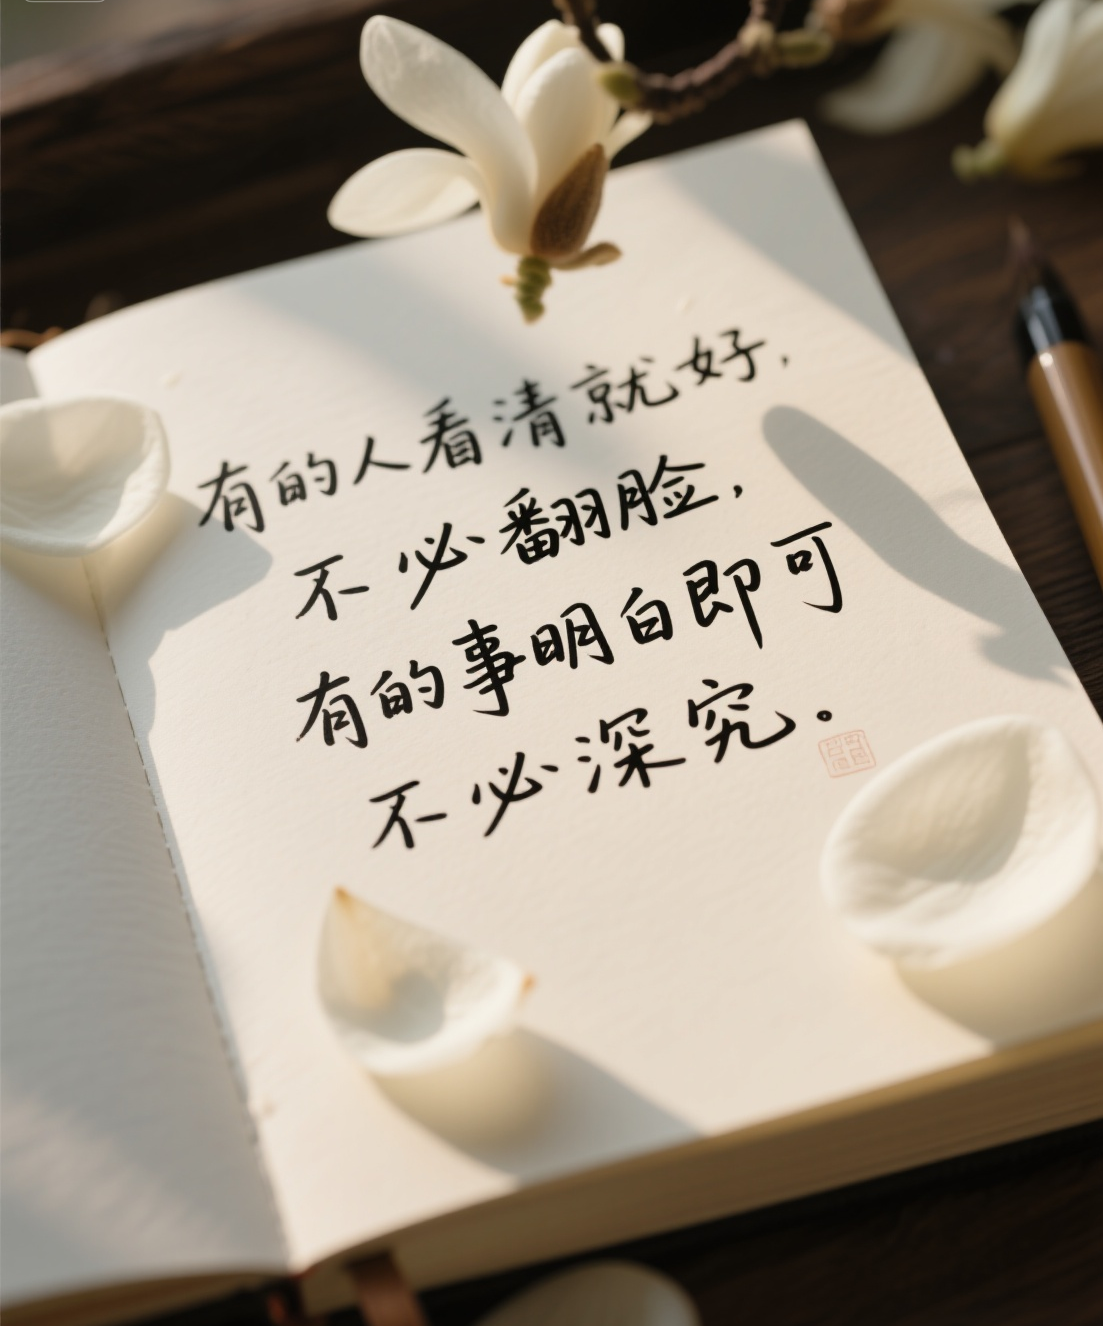 有的人看清就好，
不必翻脸，
有的事明白即可
不必深究。